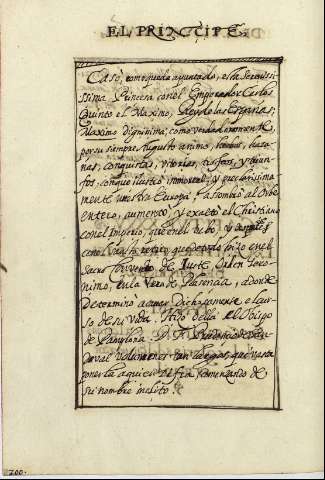 EL PRINCIPE.
Casò, como queda apuntado, esta Serenis-
sima Princesa con el Emperador Carlos
Quinto el Maximo, Rey de las Españas;
Maximo dignissima, como verdaderamente,
por su siempre Augusto animo, hechos, haza-
ñas, conquistas, vitorias, trofeos, y triun-
fos, con que ilustrò immortal, y
mente nuestra Europa, assombrò al Orbe
entero, aumentò, y exaltò el Christiano
con el Imperio, que en el hubo, y
con retiro, que de todo hizo en el
Sacro Convento de Iuste, Orden Gero-
nimo, en la Vera de Plasencia, adonde
determinò acabar Dichosamente el cur-
so de su vida. Hizo della el Obispo
de Pamplona D. F. Prudencio de San-
doval volumenes tan largos, que basta
poner la aqui en cifra, remontando de
su nombre inclito.
200.